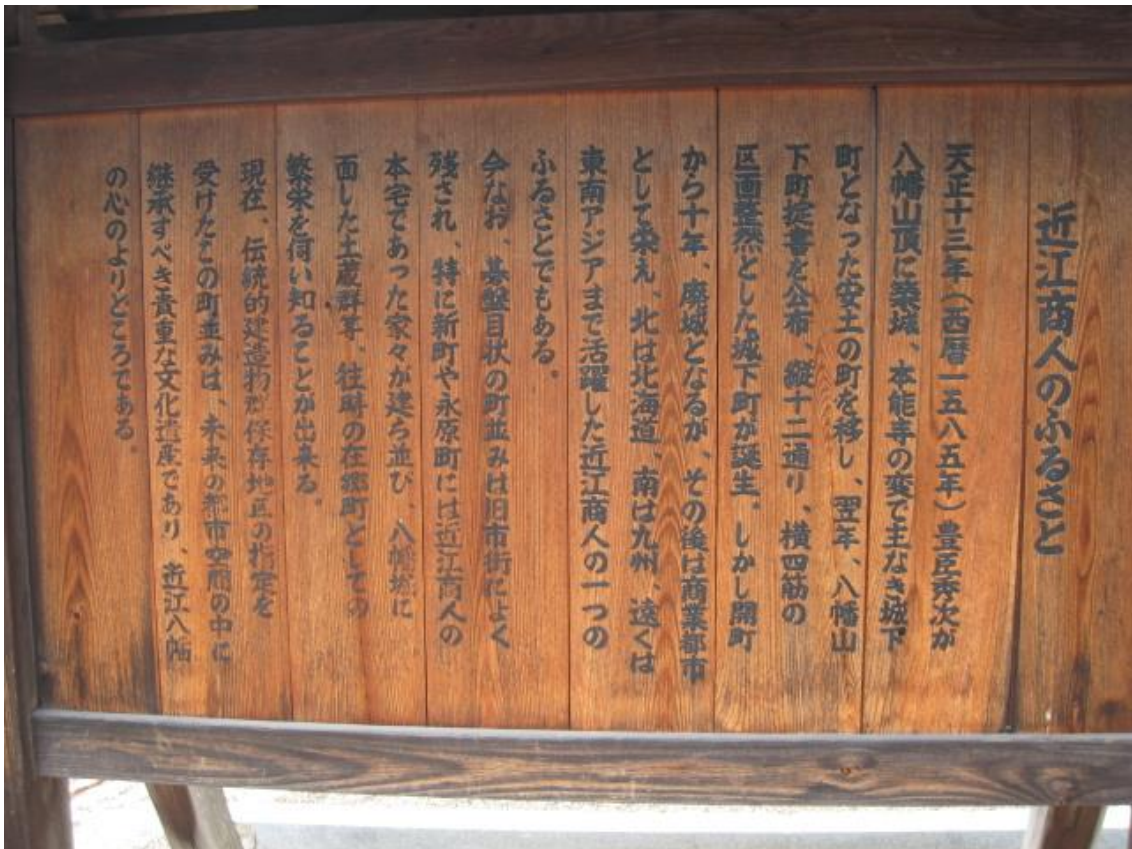 近江商人のふるさと
天正十三年（西暦一五八五年）豊臣秀次が
八幡山頂に築城、本能寺の変で主なき城下
町となった安土の町を移し、翌年、八幡山
下町掟書を公布、縦十二通り、横四筋の
区画整然とした城下町が誕生。しかし開町
から十年、廃城となるが、その後は商業都市
として栄え、北は北海道、南は九州、遠くは
東南アジアまで活躍した近江商人の一つの
ふるさとでもある。
今なお、碁盤目状の町並みは旧市街によく
残され、特に新町や永原町には近江商人の
本宅であった家々が建ち並び、八幡城に
面した土蔵群等、往時の在郷町としての
繁栄を伺い知ることが出来る。
現在、伝統的建造物群保存地区の指定を
受けたこの町並みは、未来の都市空間の中に
継承すべき貴重な文化遺産であり、近江八幡
の心のよりどころである。